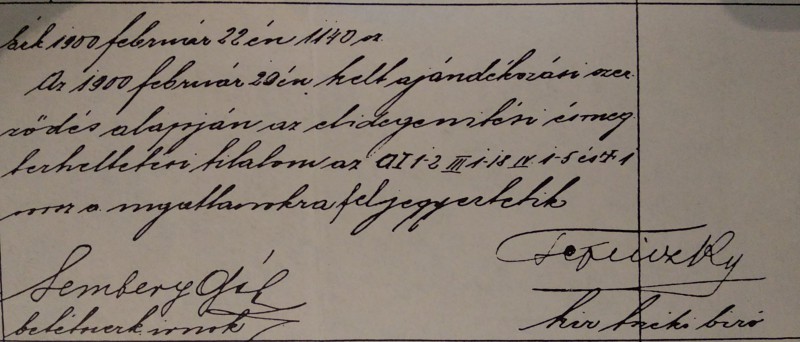 érk 1900 február 22 én 1140 sz
Az 1900 február 20 én kelt ajándékozási szer
ződés alapján az elidegenitési és meg
terheltetési tilalom az A I 1-2 III 1-18 IV 1-5 és + 1
sorsz a ingatlanokra feljegyeztetik
Sembery Gél
betétszerk irnok
kir tszéki biró